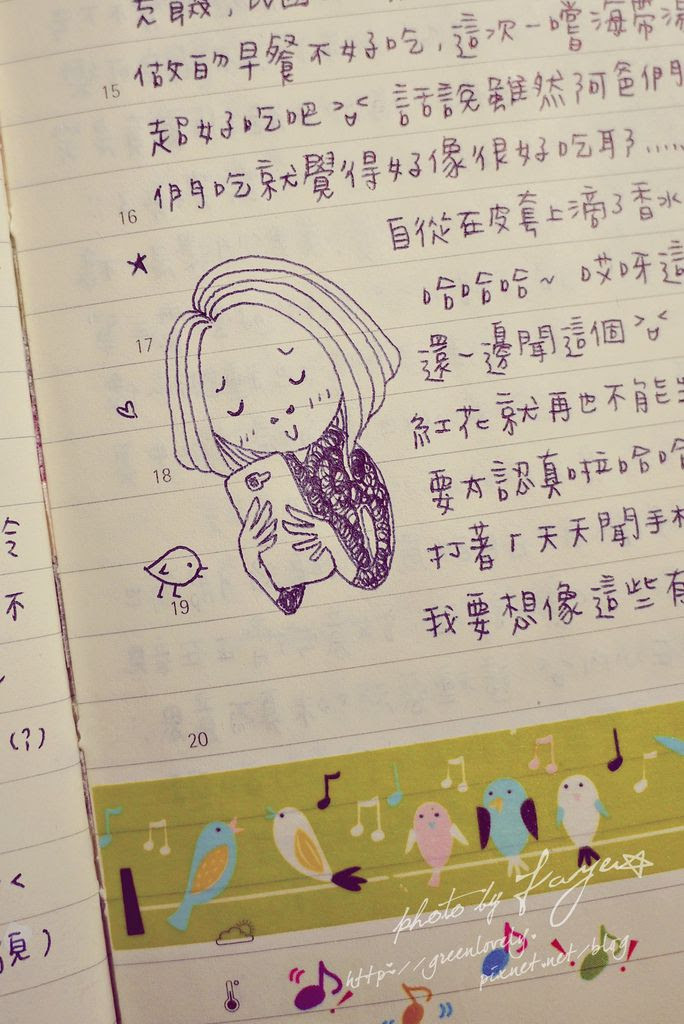 做的早餐不好吃，這次一嚐海帶湯
15
超好吃吧 >o< 話說雖然阿爸們
們吃就覺得好像很好吃耶了......
16
自從在皮套上滴了香水
哈哈哈~ 哎呀這
17
還一邊聞這個 >o<
紅花就再也不能
18
要太認真啦哈哈
打著「天天聞手機
19
我要想像這些有
20
令
不
(?)
<
)
photo by Faye
http://greenlovely.
pixnet.net/blog